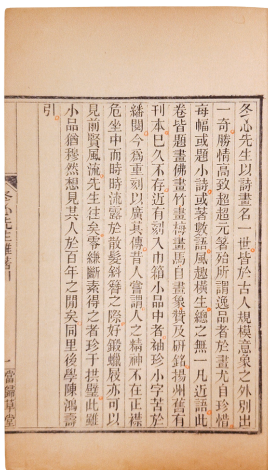 冬心先生以詩畫名一世皆於古人規模意象之外別出
一奇勝情高致超超元箸殆所謂逸品者於畫尤自珍惜
每幅或題小詩或著數語風趣橫生纏之無一凡近語此
卷皆題畫佛畫竹畫梅畫馬自畫象贊及研銘揚州舊有
刊本已久不存近有刻入巾箱小品中者袖珍小字苦於
繙閱今爲重刻以廣其傳昔人嘗謂人之精神不在正襟
危坐中而時時流露於散髮斜簪之際好鍛蠟屐亦可以
見前賢風流先生往矣零縑斷素得之者珍于拱璧此雖
小品猶穆然想見其人於百年之閒矣同里後學陳鴻壽
引
冬心先生雜著
一
當歸草堂